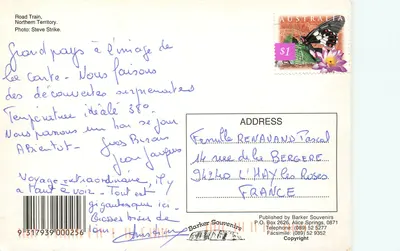 Road Train,
Northern Territory.
Photo: Steve Strike.
AUSTRALIA
$1
Grand pays à l'image de
la carte - Nous faisons
des découvertes surprenantes
Température idéale 38°
Nous passons un bon séjour
A Bientôt - Gros Bisous
Jean Jacques
Voyage extraordinaire. Il y
a tant à voir - Tout est
gigantesque ici.
Grosses bises de
loin
ADDRESS
Famille RENAVAND Pascal
14 rue de la BERGERE
94240 L'HAY les Roses
FRANCE
9 317939 000256
Published by Barker Souvenirs
P.O. Box 2626, Alice Springs, 0871
Telephone (089) 52 5277
Facsimile (089) 52 5952
Copyright
Barker Souvenirs